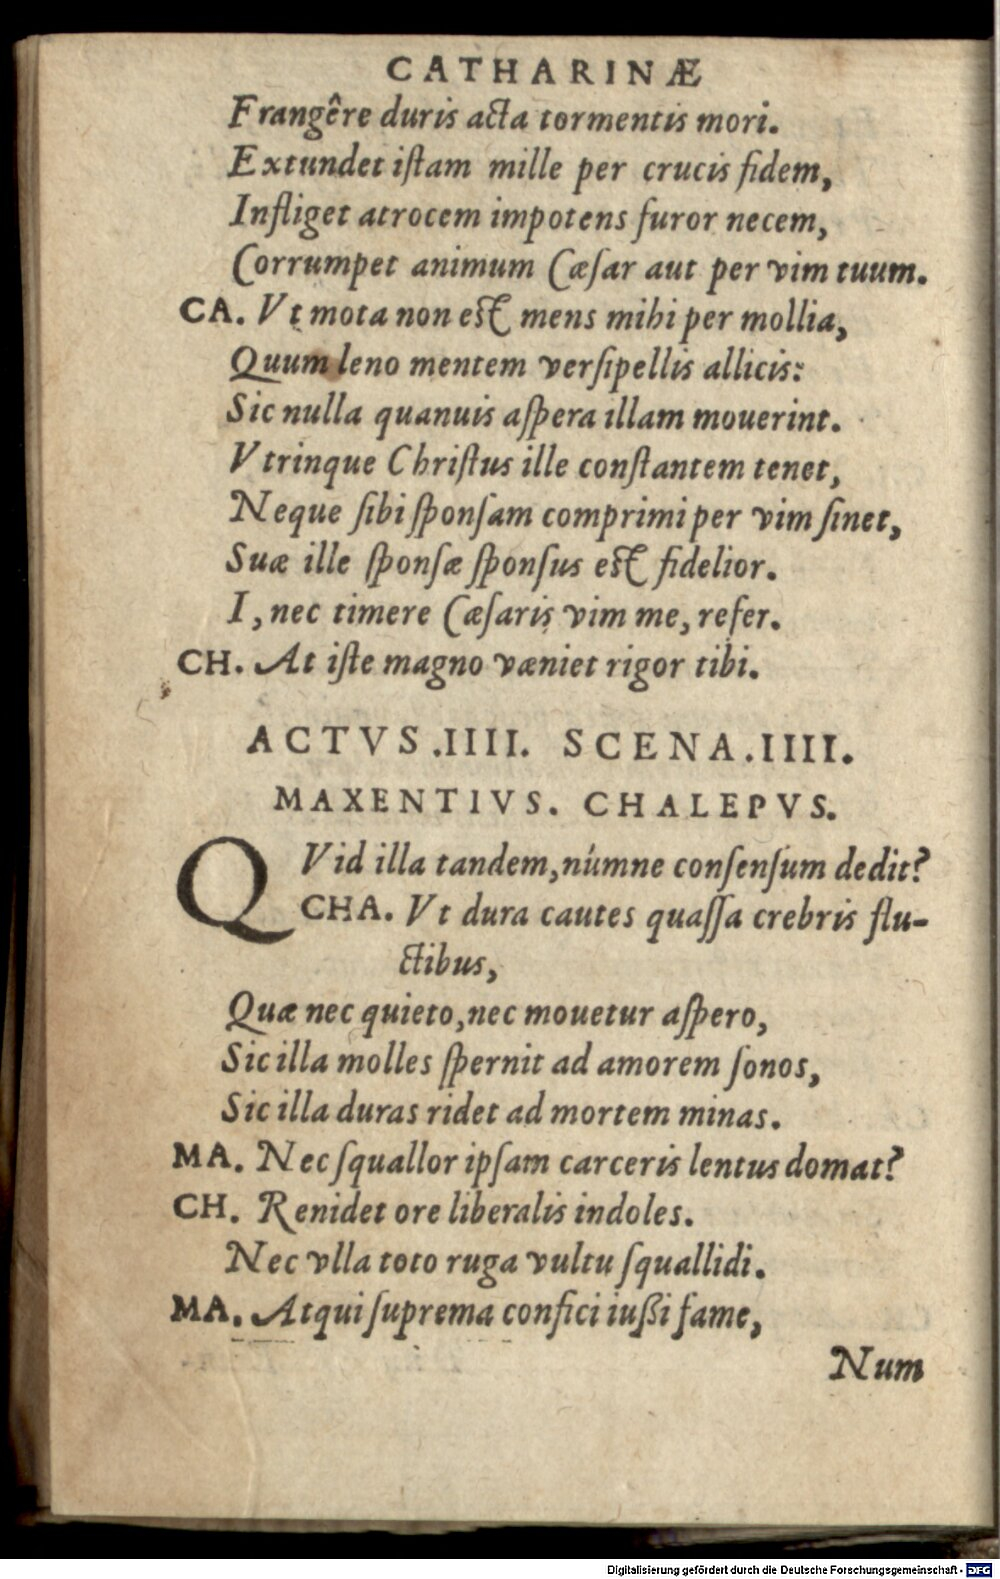 CATHARINÆ
Frangêre duris acta tormentis mori.
Extundet iſtam mille per crucis fidem,
Infliget atrocem impotens furor necem,
Corrumpet animum Cæſar aut per vim tuum.
CA. Vt mota non eſt mens mihi per mollia,
Quum leno mentem verſipellis allicis:
Sic nulla quanuis aſpera illam mouerint.
Vtrinque Chriſtus ille conſtantem tenet,
Neque ſibi ſponſam comprimi per vim ſinet,
Suæ ille ſponſæ ſponſus eſt fidelior.
I, nec timere Cæſaris vim me, refer.
CH. At iſte magno væniet rigor tibi.
ACTVS .IIII. SCENA .IIII.
MAXENTIVS. CHALEPVS.
QVid illa tandem, númne conſenſum dedit?
CHA. Vt dura cautes quaſſa crebris flu-
ctibus,
Quæ nec quieto, nec mouetur aſpero,
Sic illa molles ſpernit ad amorem ſonos,
Sic illa duras ridet ad mortem minas.
MA. Nec ſquallor ipſam carceris lentus domat?
CH. Renidet ore liberalis indoles.
Nec vlla toto ruga vultu ſquallidi.
MA. Atqui ſuprema confici iußi fame,
Num
Digitalisierung gefördert durch die Deutsche Forschungsgemeinschaft - DFG